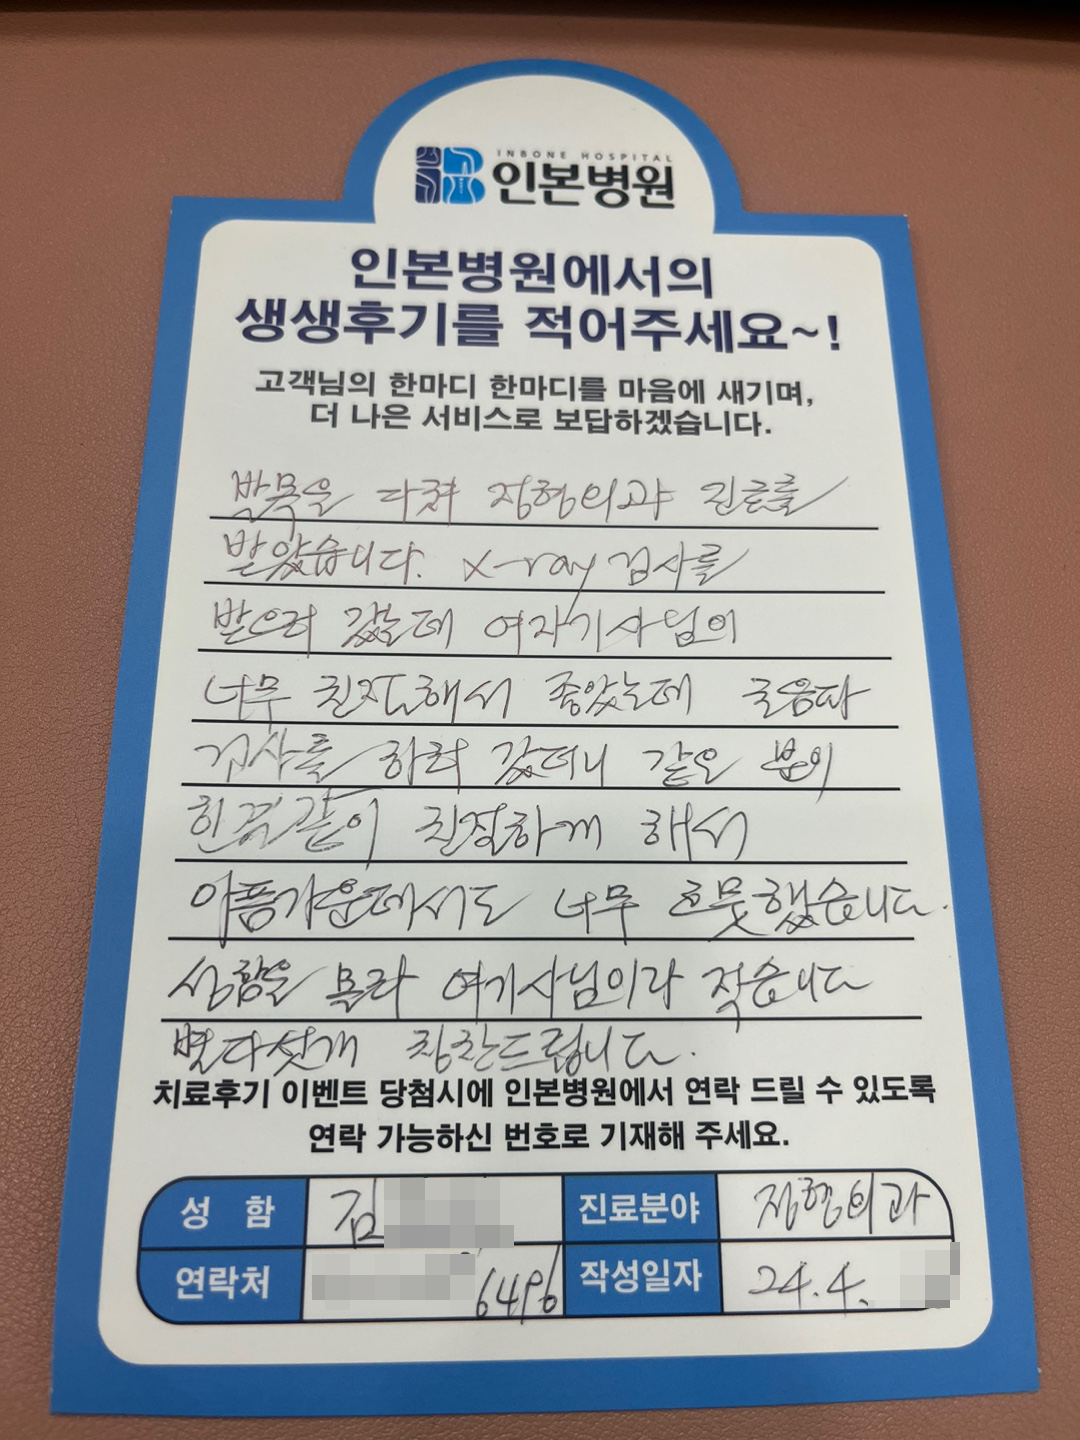 INBONE HOSPITAL
인본병원
인본병원에서의
생생후기를 적어주세요~!
고객님의 한마디 한마디를 마음에 새기며,
더 나은 서비스로 보답하겠습니다.
발목을 다쳐 정형외과 진료를
받았습니다. X-ray 검사를
받으러 갔는데 여자기사님이
너무 친절해서 좋았는데 다음
검사를 하러 갔더니 같은 분이
한결같이 친절하게 해서
아픔가운데서도 너무 흐뭇했습니다.
성함을 몰라 여기사님이라 적습니다
별다섯개 칭찬드립니다.
치료후기 이벤트 당첨시에 인본병원에서 연락 드릴 수 있도록
연락 가능하신 번호로 기재해 주세요.
성 함 김 진료분야 정형외과
연락처 6496 작성일자 24.4.